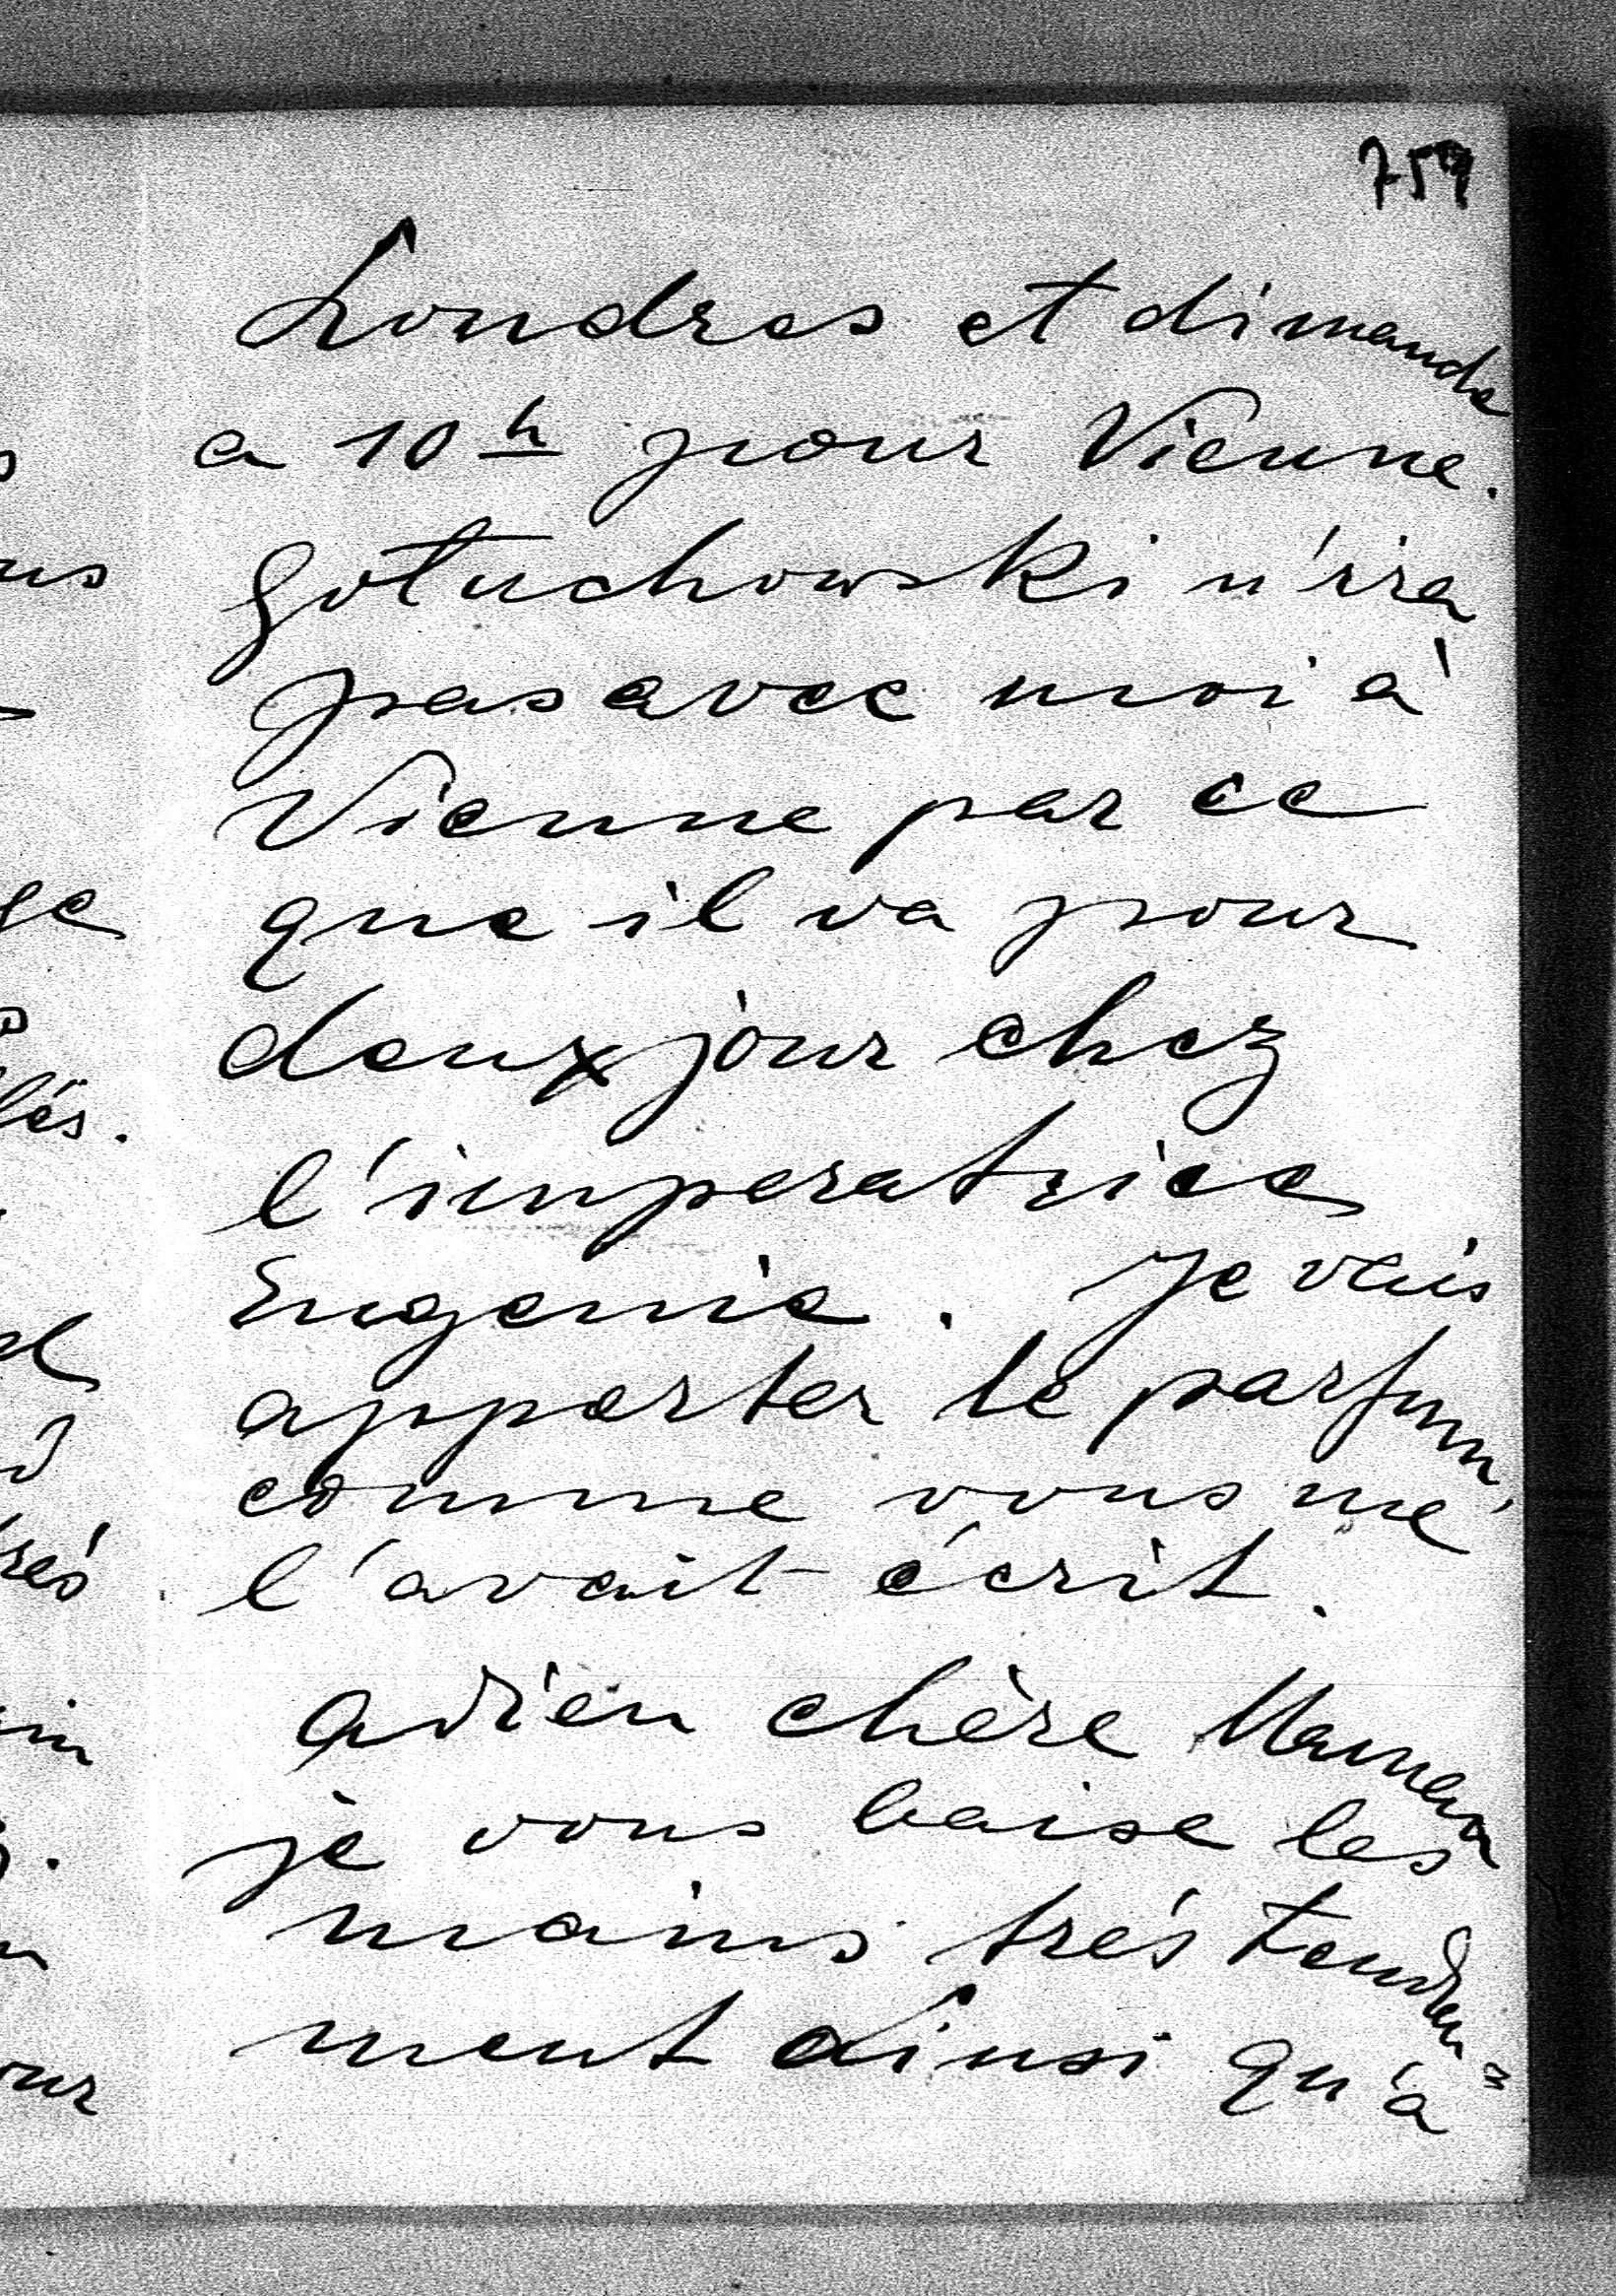 759
Londres et dimande
a 10 h pour Vienne.
Gołuchowski n'ira
pas avec moi à
Vienne par ce
que il va pour
deux jour chez
l'imperatrice
Eugenie. Je vais
apporter le parfum,
comme vous me
l'avait écrit.
Adieu chère Maman
je vous baise les
mains trés tendre=
ment ainsi qu'à